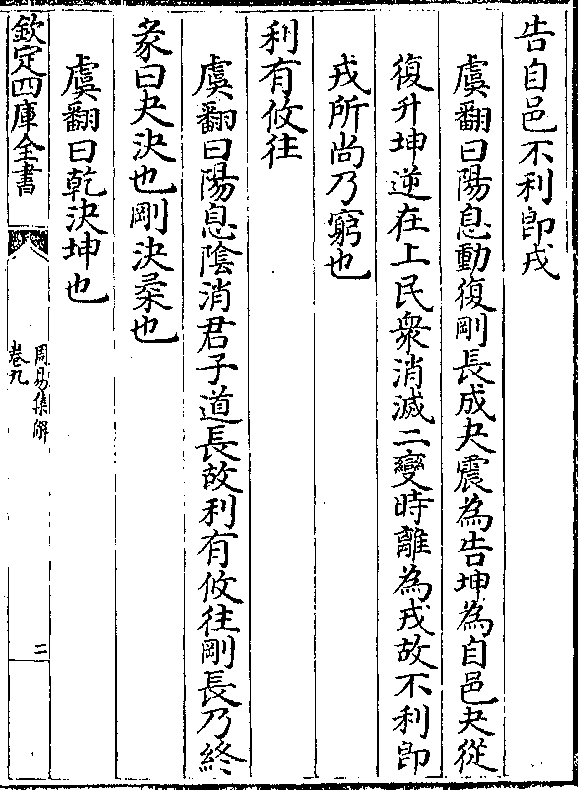 告自邑不利即戎
虞翻曰陽息動復剛長成夬震為告坤為自邑夬從
復升坤逆在上民衆消滅二變時離為戎故不利即
戎所尚乃窮也
利有攸往
虞翻曰陽息隂消君子道長故利有攸往剛長乃終
彖曰夬決也剛決柔也
虞翻曰乾決坤也
欽定四庫全書
周易集解
卷九
二